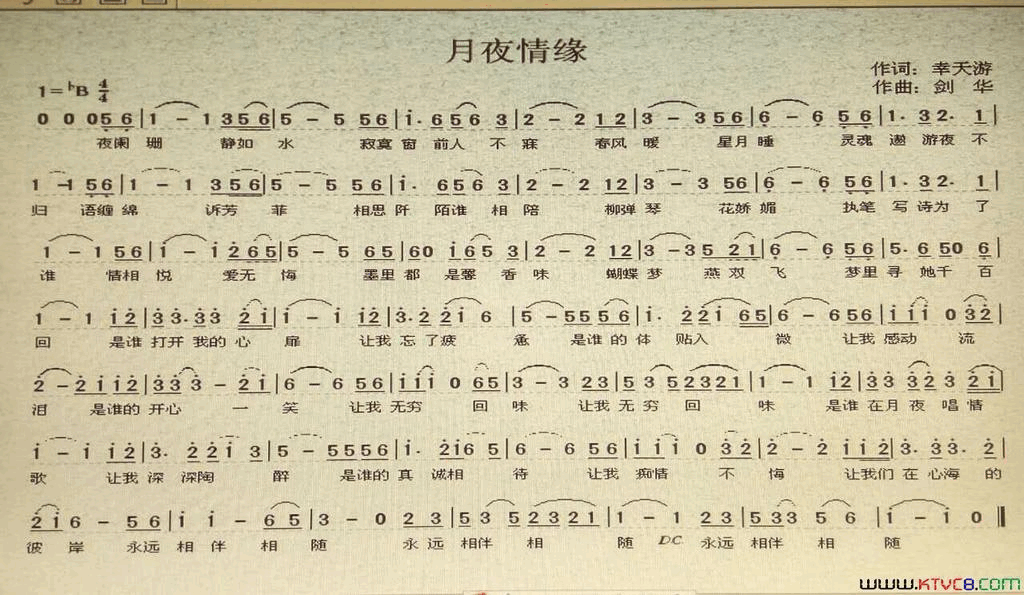 月夜情缘
作词：幸天游
1=ᵇB 4/4
作曲：剑 华
0 0 056|1 - 1356|5 - 5 56|i· 656 3|2 - 2 12|3 - 356|6 - 6 56|1· 32· 1|
夜阑珊 静如水 寂寞窗前人不寐 春风暖 星月睡 灵魂遨游夜不
1 -1 56|1 - 1 356|5 - 5 56|i· 656 3|2 - 2 12|3 - 3 56|6 - 6 56|1· 32· 1|
归 语缠绵 诉芳菲 相思阡陌谁相陪 柳弹琴 花娇媚 执笔写诗为了
1 - 1 56|i - i265|5 - 5 65|60 i65 3|2 - 2 12|3 -35 21|6 - 6 56|5· 650 6|
谁 情相悦 爱无悔 墨里都是馨香味 蝴蝶梦 燕双飞 梦里寻她千百
1 - 1 i2|33·33 2i|i - i i2|3· 22i 6|5 -5556|i· 22i 65|6 - 656|iii 0 32|
回 是谁打开我的心扉 让我忘了疲惫 是谁的体贴入微 让我感动流
2 -2ii2|333 - 2i|6 - 6 56|iii 0 65|3 - 3 23|53 52321|1 - 1 i2|33 323 2i|
泪 是谁的开心一笑 让我无穷回味 让我无穷回味 是谁在月夜唱情
i - i i2|3· 22i 3|5 - 5556|i· 2i65|6 - 6 56|iii 0 32|2 - 2 ii2|3· 33· 2|
歌 让我深深陶醉 是谁的真诚相待 让我痴情不悔 让我们在心海的
2i6 - 56|i i - 65|3 - 0 23|53 52321|1 - 1 23|533 5 6|i - i 0‖
彼岸 永远相伴相随 永远相伴相随 D.C. 永远相伴相随
www.KTVC8.com